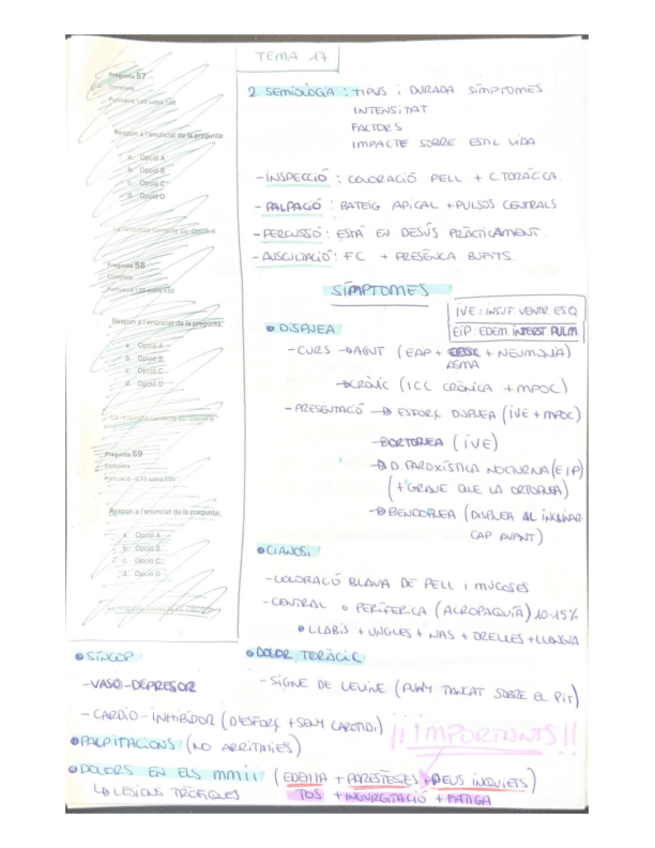 TEMA 17
Pregunta 57
Completa
Puntuació 1,00 sobre 1,00
Respon a l'enunciat de la pregunta:
a. Opció A
b. Opció B
c. Opció C
d. Opció D
La resposta correcta és: Opció A
Pregunta 58
Completa
Puntuació 1,00 sobre 1,00
Respon a l'enunciat de la pregunta:
a. Opció A
b. Opció B
c. Opció C
d. Opció D
La resposta correcta és: Opció B
Pregunta 59
Completa
Puntuació -0,33 sobre 1,00
Respon a l'enunciat de la pregunta:
a. Opció A
b. Opció B
c. Opció C
d. Opció D
La resposta correcta és:
2. SEMIOLOGIA: TIPUS i DURADA SÍMPTOMES
INTENSITAT
FACTORS
IMPACTE SOBRE ESTIL VIDA
- INSPECCIÓ: COLORACIÓ PELL + C.TORÀCICA.
- PALPACIÓ: BATEIG APICAL + PULSOS CENTRALS
- PERCUSSIÓ: ESTÀ EN DESÚS PRÀCTICAMENT.
- AUSCULTACIÓ: FC + PRESÈNCIA BUFITS.
SÍMPTOMES
IVE = INSUF VENTR ESQ
EIP EDEM INTERST PULM
• DISPNEA
- CURS → AGUT (EAP + + NEUMONIA)
ASMA
→ CRÒNIC (ICC CRÒNICA + MPOC)
- PRESENTACIÓ → ESFORÇ DISPNEA (IVE + MPOC)
→ ORTOPNEA (IVE)
→ D. PAROXÍSTICA NOCTURNA (EIP)
(+ GRAVE QUE LA ORTOPNEA)
→ BENDOPNEA (DISPNEA AL INCLINAR
CAP AVANT)
• CIANOSI
- COLORACIÓ BLAVA DE PELL I MUCOSES
- CENTRAL O PERIFÈRICA (ACROPAQUIA) 10-15%
• LLABIS + UNGLES + NAS + ORELLES + LLENGUA
• DOLOR TORÀCIC
- SIGNE DE LEVINE (PUNY TANCAT SOBRE EL PIT)
• SÍNCOP
- VASO-DEPRESOR
- CARDIO-INHIBIDOR (D'ESFORÇ + SENY CAROTIDI)
• PALPITACIONS (NO ARRITMIES)
¡¡IMPORTANTS!!
• DOLORS EN ELS MMII (EDEMA + PARESTÈSIES + PEUS INQUIETS)
↳ LESIONS TRÒFIQUES
TOS + INGURGITACIÓ + FATIGA